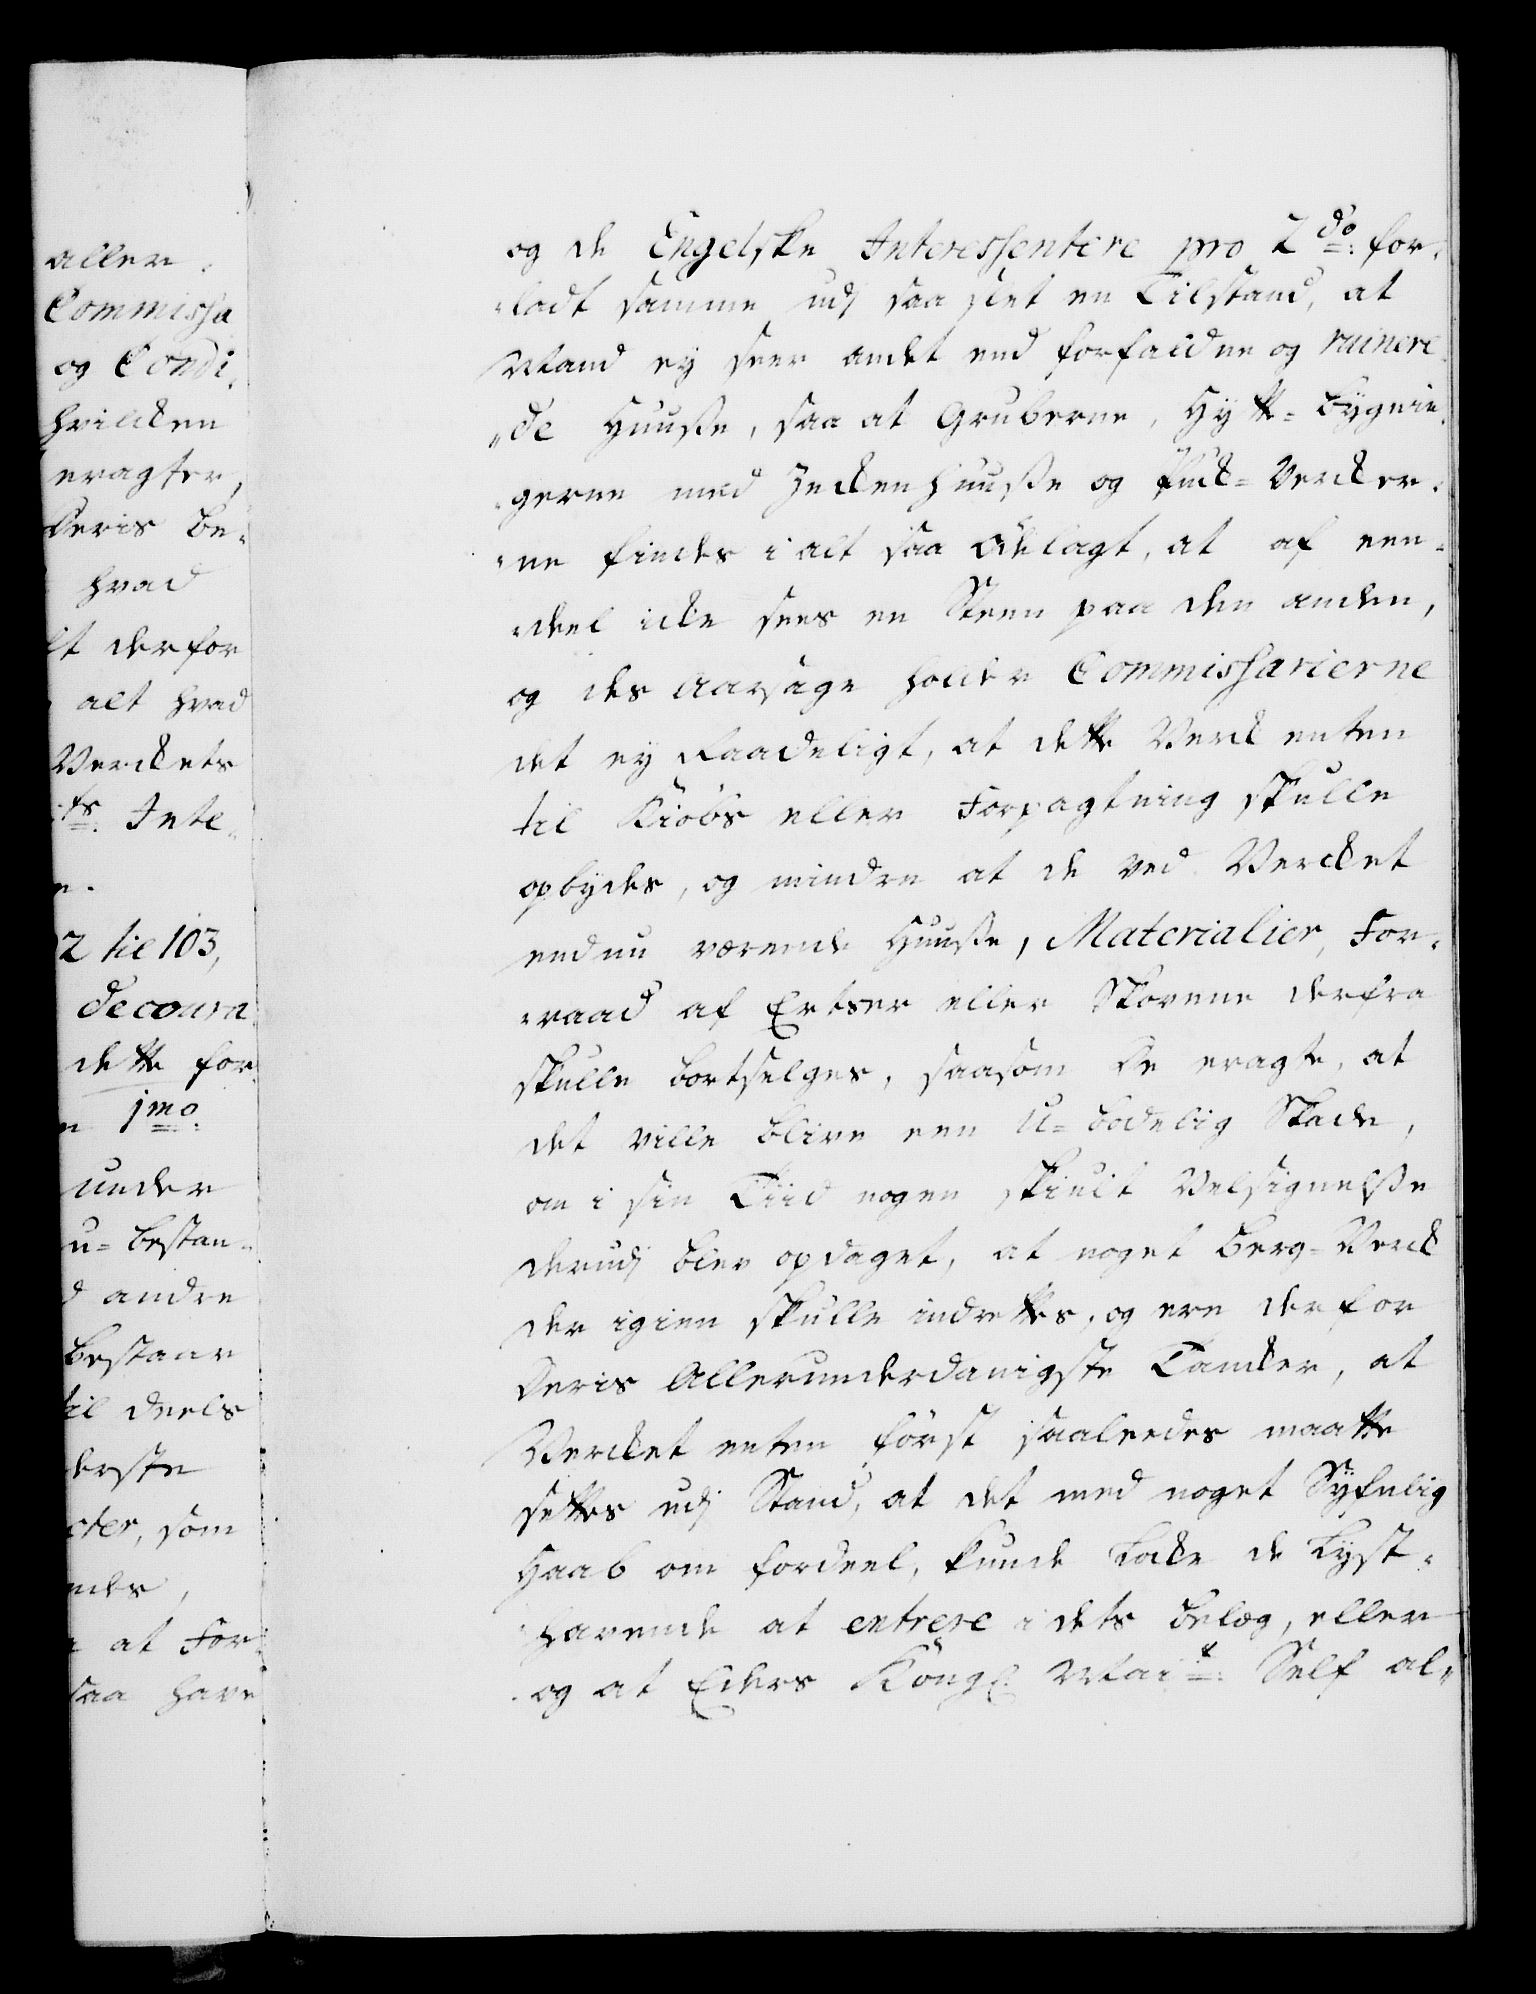 aller.
Commissa
og Condi.
hvilcken
eragter,
Deris be-
hvad
lt derfor
alt hvad
Verckets
Inte-
2 til 103,
decoura
dette for
1mo
under
u-bestan-
d andre
bestaar
til deels
derste
cter, som
ndes,
at For
saa have
og de Engelske Interessentere pro 2do for-
-ladt samme udj saa slet en Tilstand, at
Mand ej seer andet end forfaldne og ruinere
-de Huuse, saa at Gruberne, Hytte-bygnin
-gerne med Zeckenhuuse og Puck-Vercker-
-ne findes i alt saa Ødelagt, at af een-
-deel icke sees en Steen paa den anden,
og des Aarsage holder Commissarierne
det ej Raadeligt, at dette Verck enten
til Kiøbs eller Forpagtning skulle
opbydes, og mindre at de ved Vercket
endnu værende Huuse, Materialier, For-
-raad af Ertser eller Skovene derfra
skulle bortselges, saasom De eragte, at
det ville blive een U-bodelig Skade,
om i sin Tiid nogen skiult Velsignelse
derudj blev opdaget, at noget Berg-Verck
der igien skulle indrettes, og ere derfor
Deris Allerunderdanigste Tancker, at
Vercket enten først saaleedes maatte
settes udj Stand, at det med noget Syfnlig
Haab om fordeel, kunde locke de Lyst-
havende at entrere i dets belæg, eller
og at Eders Kongl. Mait: Self al-